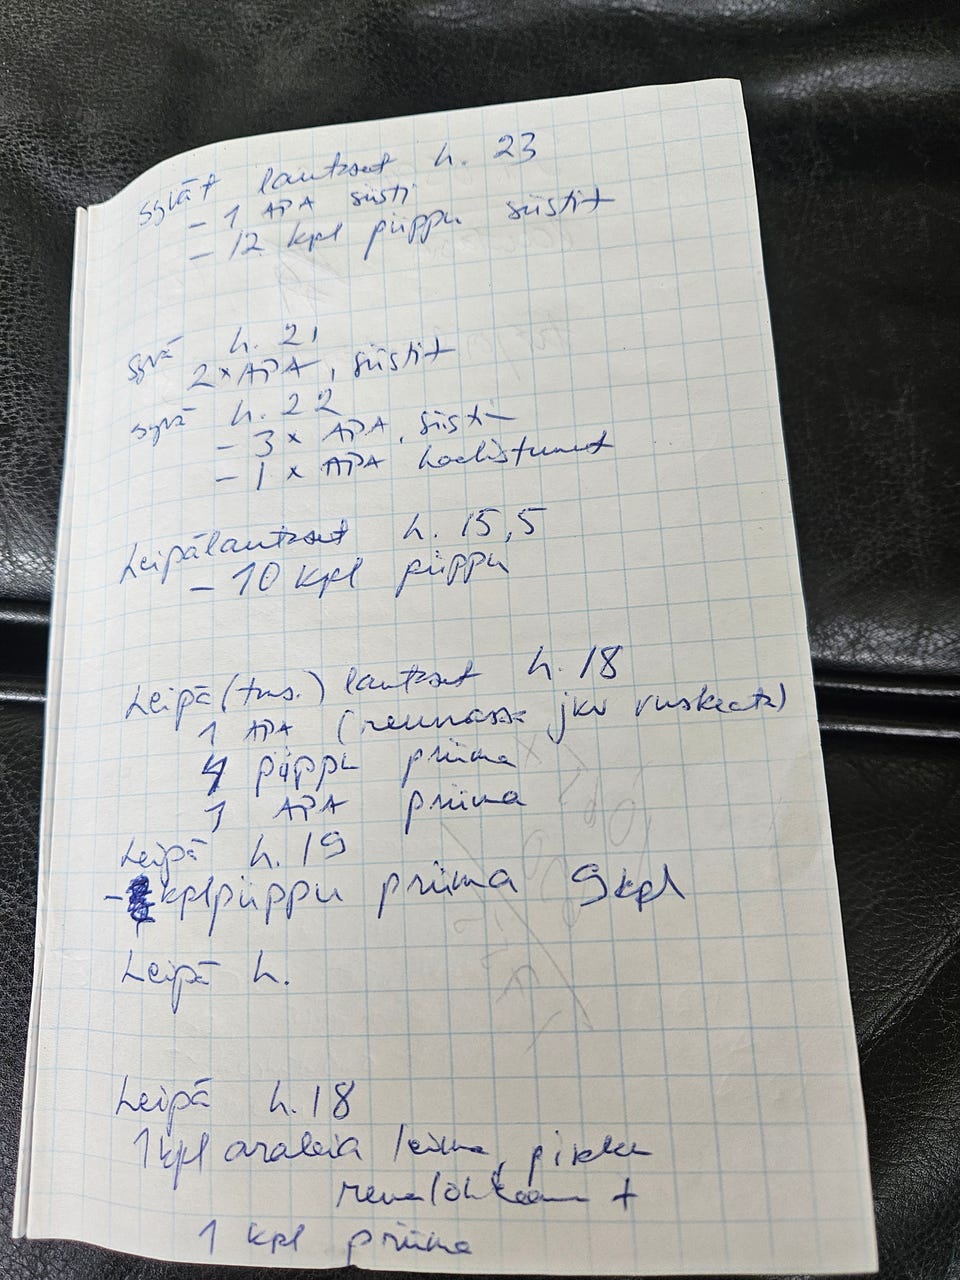 Syvät lautaset h. 23
- 1 APA siisti
- 12 kpl piippu siistit
Syvä h. 21
2 x APA, siistit
Syvä h. 22
- 3 x APA, siisti
- 1 x APA haalistunut
Leipälautaset h. 15,5
- 10 kpl piippu
Leipä (tms.) lautaset h. 18
1 APA (reunassa jkv ruskeata)
4 piippu priima
1 APA priima
Leipä h. 19
- kpl piippu priima 9 kpl
Leipä h.
Leipä h. 18
1 kpl arabia leima, pikku
reunalohkeama +
1 kpl priima